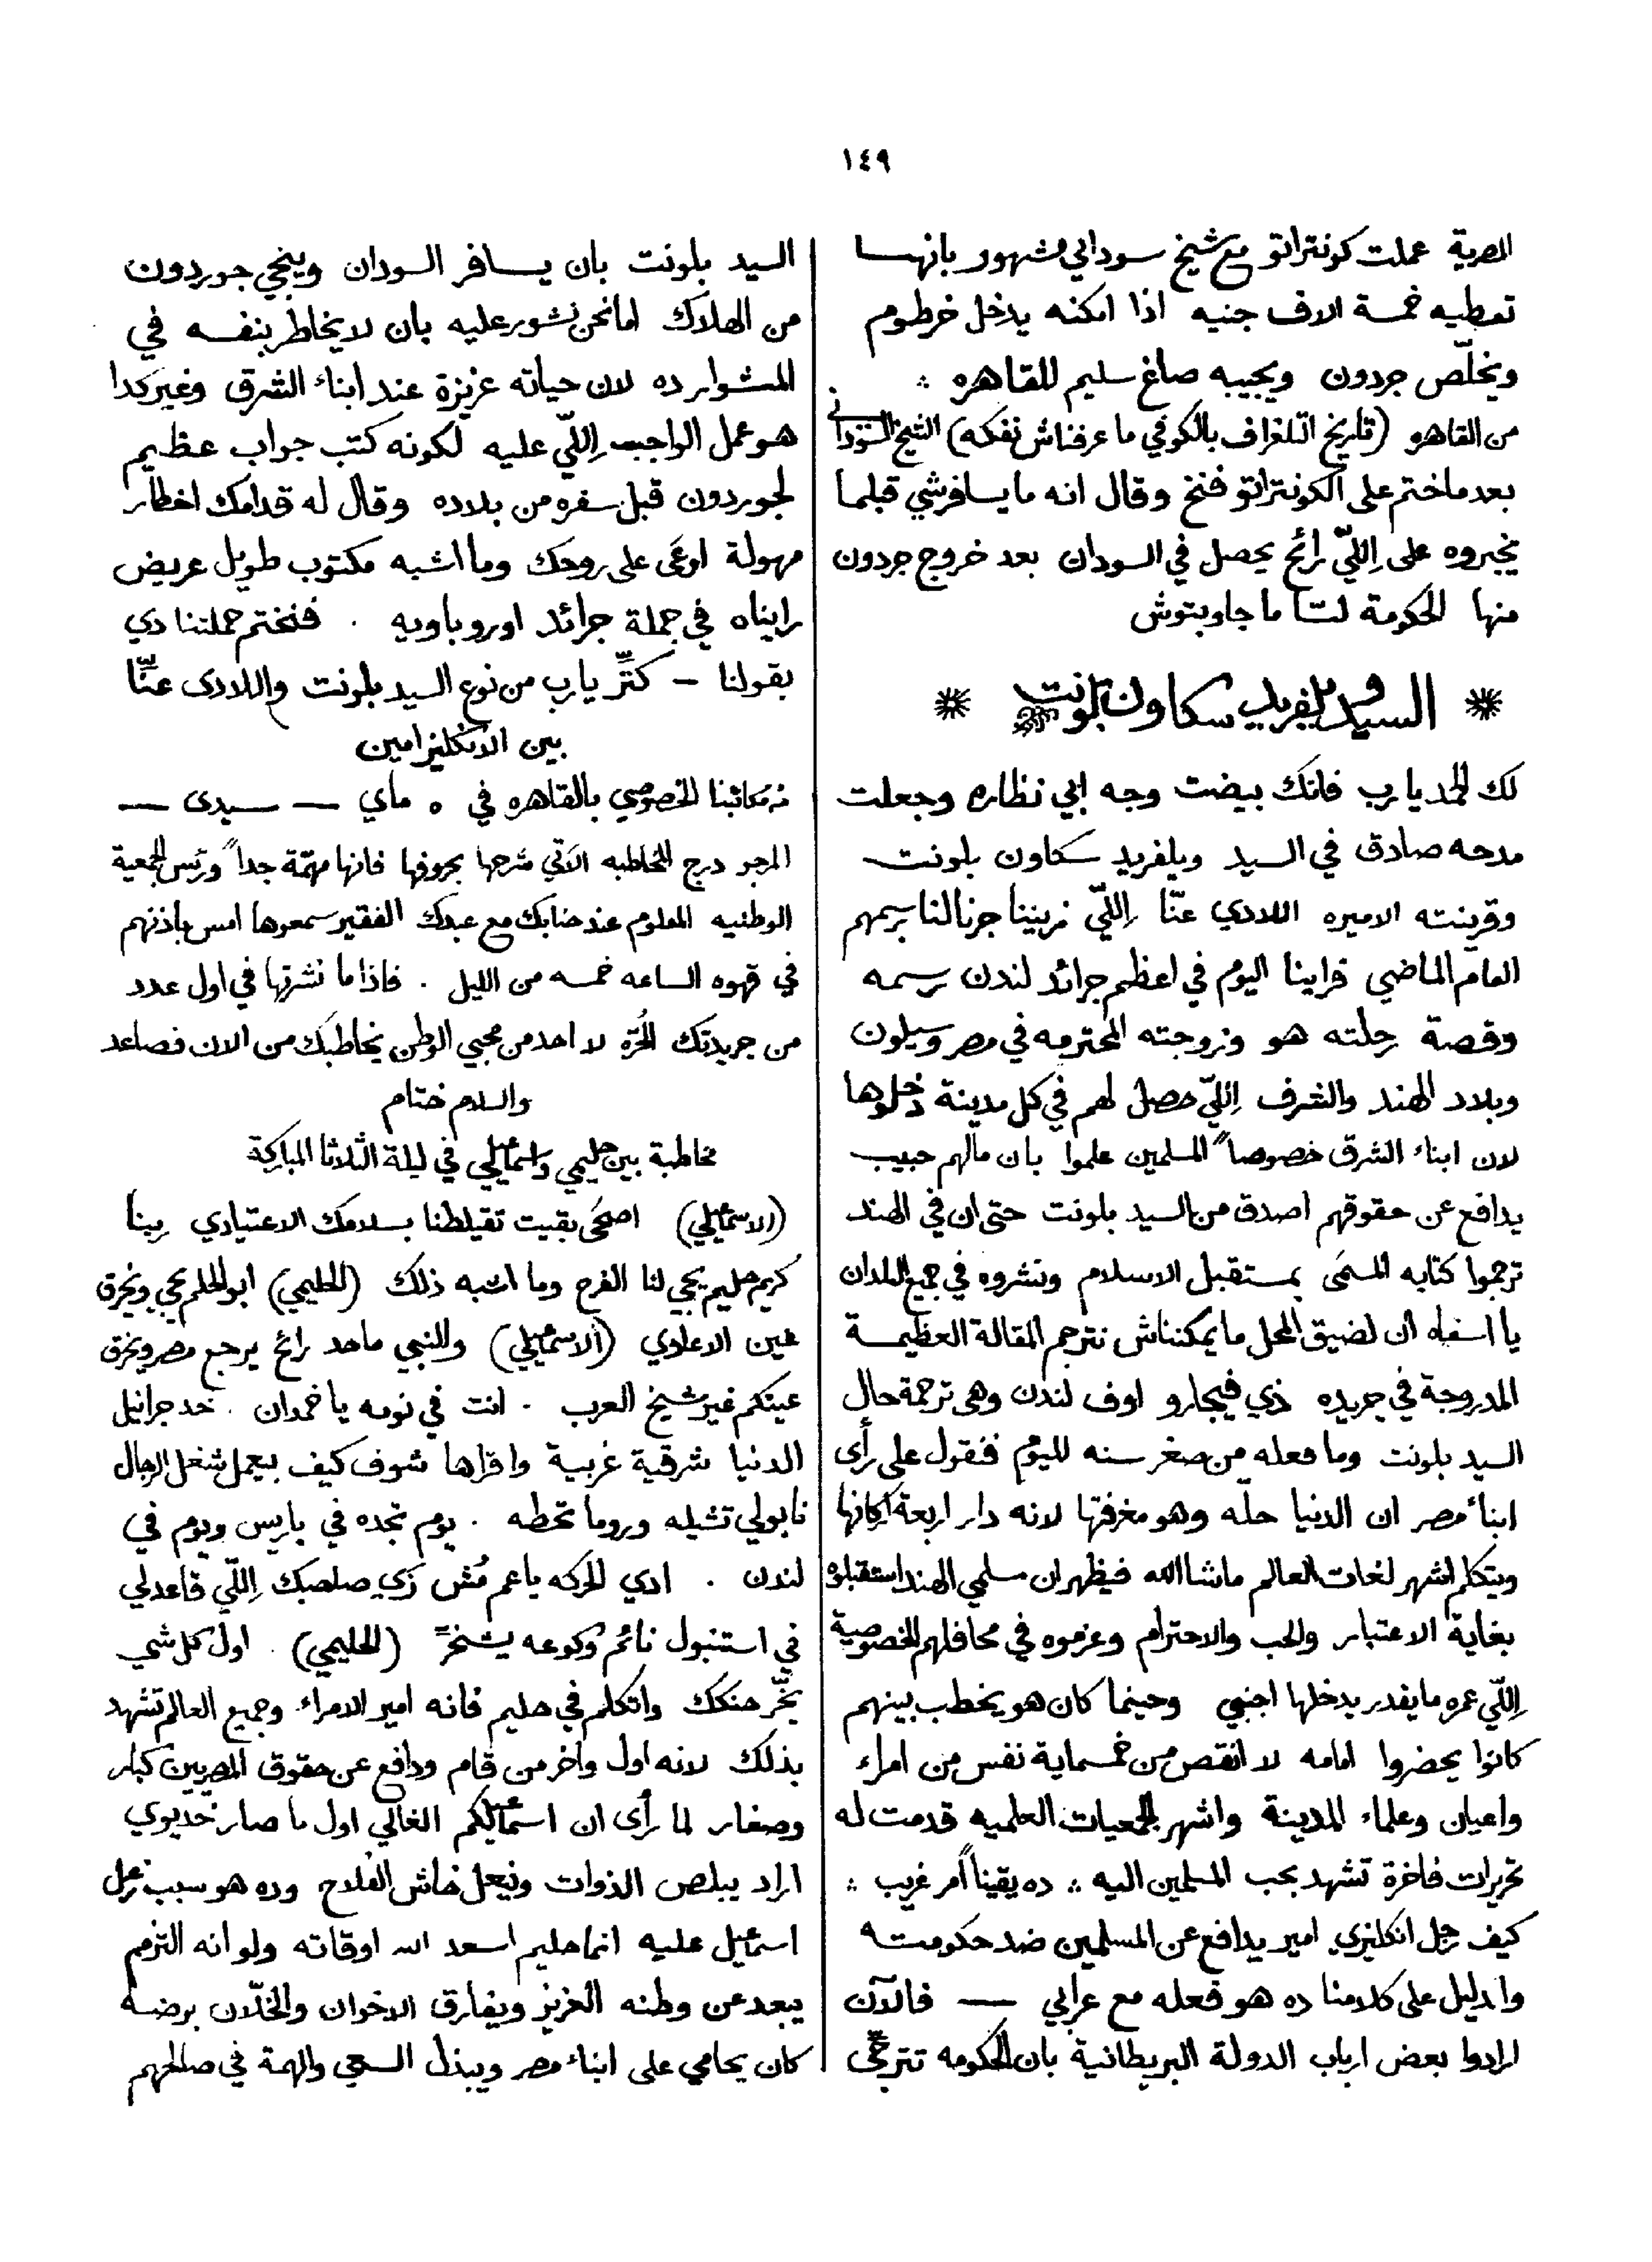 ١٤٩
المصرية عملت كونتراتو مع شيخ سوداني مشهور بانها
تعطيه خمسة الاف جنيه اذا امكنه يدخل خرطوم
ويخلّص جردون ويجيبه صاغ سليم للقاهره
من القاهره (تاريخ التلغراف بالكوفي ما عرفناش نفكه) الشيخ السودانى
بعد ما ختم على الكونتراتو فنخ وقال انه ما يسافرشي قبلما
يخبروه على اِللّي رائح يحصل في السودان بعد خروج جردون
منها الحكومة لسّا ما جاوبتوش
السيد ويلفريد سكاون بلونت
لك الحمد يا رب فانك بيضت وجه ابي نظاره وجعلت
مدحه صادق في السيد ويلفريد سكاون بلونت
وقرينته الاميره اللادي عنّا اِللّي زيننا جرنالنا برسمهم
العام الماضي قراينا اليوم في اعظم جرائد لندن رسمه
وقصة رحلته هو وزوجته المحترمه في مصر وسيلون
وبلاد الهند والشرف اِللّي حصل لهم في كل مدينة دخلوها
لان ابناء الشرق خصوصاً المسلمين علموا بان مالهم حبيب
يدافع عن حقوقهم اصدق من السيد بلونت حتى ان في الهند
ترجموا كتابه المسمَى بمستقبل الاسلام ونشروه في جميع البلدان
يا اسفاه ان لضيق المحل ما يمكنناش نترجم المقالة العظيمة
المدروجة في جريده ذي فيجارو اوف لندن وهى ترجمة حال
السيد بلونت وما فعله من صغر سنه لليوم فنقول على رأى
ابناء مصر ان الدنيا حلّه وهو مغرفتها لانه دار اربعة اكانها
ويتكلم اشهر لغات العالم ماشاالله فيظهر ان مسلمي الهند استقبلوه
بغاية الاعتبار والحب والاحترام وعزموه في محافلهم الخصوصية
اِللّي عمره ما يقدر يدخلها اجنبي وحينما كان هو يخطب بينهم
كانوا يحضروا امامه لا انقص من خمسماية نفس من امراء
واعيان وعلماء المدينة واشهر الجمعيات العلميه قدمت له
تحريرات فاخرة تشهد بحب المسلمين اليه ده يقيناً أمر غريب
كيف رجل انكليزي امير يدافع عن المسلمين ضد حكومته
والدليل على كلامنا ده هو فعله مع عرابي — فالآن
ارادوا بعض ارباب الدولة البريطانية بان الحكومه تترجّى
السيد بلونت بان يسافر السودان وينجي جوردون
من الهلاك اما نحن نشور عليه بان لا يخاطر بنفسه في
المشوار ده لان حياته عزيزة عند ابناء الشرق وغير كدا
هو عمل الواجب اِللّي عليه لكونه كتب جواب عظيم
لجوردون قبل سفره من بلاده وقال له قدامك اخطار
مهولة اوعَى على روحك وما اشبه مكتوب طويل عريض
رايناه في جملة جرائد اوروباويه . فنختم جملتنا دي
بقولنا — كتّر يا رب من نوع السيد بلونت واللادى عنّا
بين الانكليز امين
من مكاتبنا الخصوصي بالقاهره في ٥ ماي — سيدى —
المرجو درج المخاطبه الاتي شرحها بحروفها فانها مهمّة جداً ورئيس الجمعية
الوطنيه المعلوم عند جنابك مع عبدك الفقير سمعوها امس باذنهم
في قهوه الساعه خمسه من الليل . فاذا ما نشرتها في اول عدد
من جريدتك الحُرّه لا احد من محبي الوطن يخاطبك من الان فصاعد
والسلام ختام
مخاطبة بين حليمي واسماعيلي في ليلة الثلاثا المباركة
(الاسماعيلي) اصحَى بقيت تقيلطنا بسلامك الاعتيادي ربنا
كريم حليم يجي لنا الفرج وما اشبه ذلك (الحليمي) ابو الحلم يجي ويخرق
عين الاعادي (الاسماعيلي) والنبي ماحد رائح يرجع مصر ويخرق
عينكم غير شيخ العرب . انت في نومه يا خمدان . خد جرانيل
الدنيا شرقية غربية واقراها شوف كيف بيعمل شغل الرجال
نابولي تشيله وروما تحطه . يوم تجده في باريس ويوم في
لندن . ادي الحركه يا عم مُش زَي صاحبك اِللّي قاعد لي
في استنبول نائم وكوعه يشخرّ (الحليمي) . اول كل شي
بخّر حنكك واتكلم في حليم فانه امير الامراء وجميع العالم تشهد
بذلك لانه اول واخر من قام ودافع عن حقوق المصريين كبار
وصغار لما رأى ان اسماعيلكم الغالي اول ما صار خديوي
اراد يبلص الذوات ويحل خاش الفلاح وده هو سبب زعل
اسماعيل عليه انما حليم اسعد الله اوقاته ولو انه التزم
يبعد عن وطنه العزيز ويفارق الاخوان والخلّان برضه
كان يحامي على ابناء مصر ويبذل السعي والهمة في صالحهم